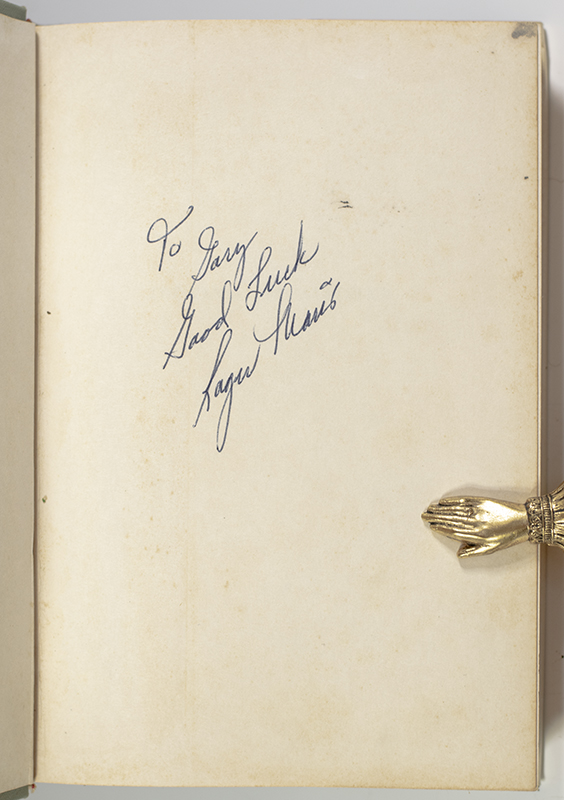 To Gary
Good Luck
Roger Maris